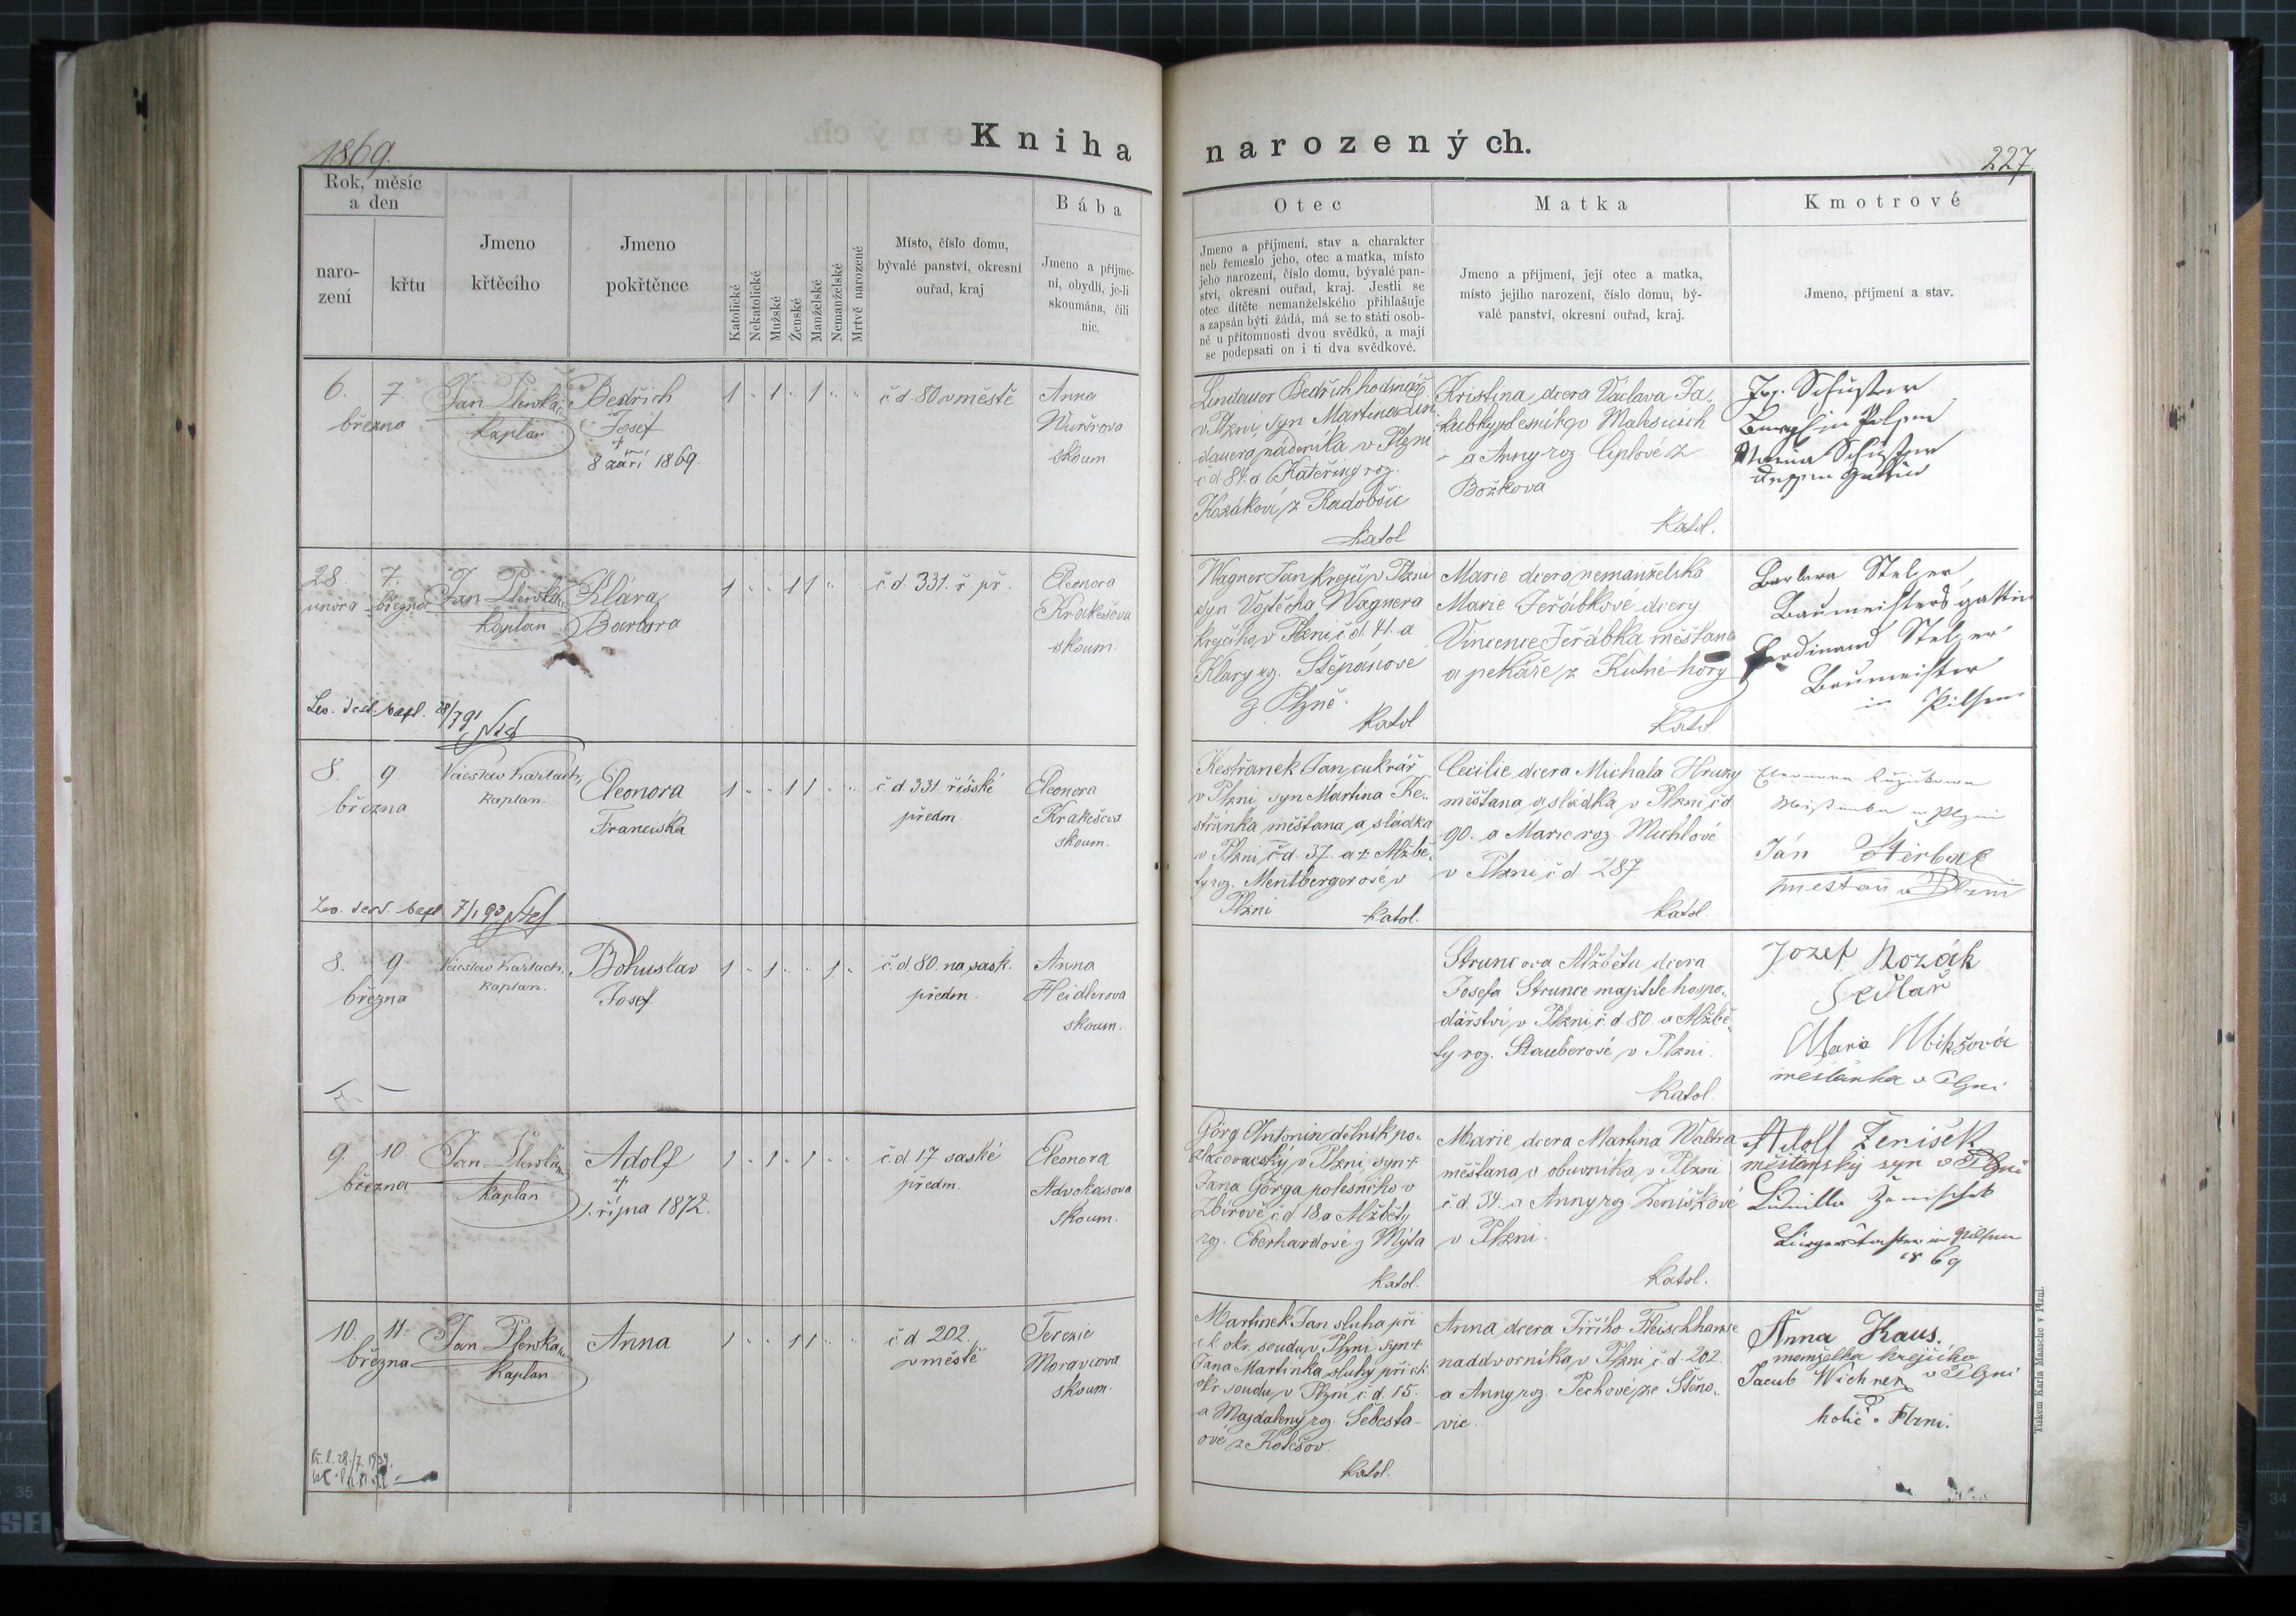 1869.
Kniha narozených.
227
Rok, měsíc
a den
naro-
zení
křtu
Jmeno
křtěcího
Jmeno
pokřtěnce
Katolické
Nekatolické
Mužské
Ženské
Manželské
Nemanželské
Mrtvě narozené
Místo, číslo domu,
bývalé panství, okresní
ouřad, kraj
Bába
Jmeno a příjme-
ní, obydlí, je-li
skoumána, čili
nic.
Otec
Jmeno a příjmení, stav a charakter
neb řemeslo jeho, otec a matka, místo
jeho narození, číslo domu, bývalé pan-
ství, okresní ouřad, kraj. Jestli se
otec dítěte nemanželského přihlašuje
a zapsán býti žádá, má se to státi osob-
ně u přítomnosti dvou svědků, a mají
se podepsati on i ti dva svědkové.
Matka
Jmeno a příjmení, její otec a matka,
místo jejího narození, číslo domu, bý-
valé panství, okresní ouřad, kraj.
Kmotrové
Jmeno, příjmení a stav.
6. 7.
března
Jan
Kaplan
Bedřich
Josef
†
8 září 1869.
1 " 1 " 1 " "
č d 80 v městě
Anna
skoum
Lindauer Bedřich hodinář
v Plzni, syn Martina Lin
dauera, nádeníka v Plzni
č d 84. a Kateřiny roz.
Kozákovi z Radobšic
katol
Kristina, dcera Václava Ja-
kubky, v Malesicích
a Anny roz Ciplové z
Božkova
katol.
Jos. Schuster
Bürger in Pilsen
Maria Schuster
dessen Gattin
28. 7.
února března
Jan
Kaplan
Klára
Barbora
1 " " 1 1 " "
č d. 331. ř př.
Eleonora
Krakešova
skoum.
Wagner Jan krejčí v Plzni
syn Vojtěcha Wagnera
krejčího v Plzni č d. 41. a
Klary roz. Štěpánové
z Plzně.
katol
Marie dcera nemanželská
Marie Jeřábkové dcery
Vincence Jeřábka měšťana
a pekaře z Kutné-hory
katol
Barbara Stelzer
Baumeisters gattin
Ferdinand Stelzer
Baumeister
in Pilsen
28/7 91
8. 9.
března
Václav Karlach,
Kaplan.
Eleonora
Franciska
1 " " 1 1 " "
č d. 331. říšské
předm.
Eleonora
Krakešova
skoum.
Kestřanek Jan, cukrář
v Plzni syn Martina Ke-
střánka měšťana a sládka
v Plzni č d. 37. a † Alžbě-
ty roz. Mentbergerové v
Plzni katol.
Cecilie dcera Michala Hrusy
měšťana a sládka v Plzni č d
90. a Marie roz. Michlové
v Plzni č d 287
katol.
Eleonora
v Plzni
Ján Štěrbac
mešťan v Plzni
8. 9.
března
Václav Karlach,
Kaplan.
Bohuslav
Josef
1 " 1 " " 1 "
č. d. 80. na sask.
předm.
Anna
Heidlerova
skoum.
Struncova Alžběta dcera
Josefa Strunce majitele hospo-
dářství v Plzni č. d 80. a Alžbě-
ty roz. Stauberové v Plzni.
katol.
Jozef Kozák
Sedlář
Marie Mikšová
mešťanka v Plzni
9. 10.
března
Jan
Kaplan
Adolf
†
1. října 1872.
1 " 1 " 1 " "
č. d. 17 saské
předm.
Eleonora
Advokasova
skoum.
Görg Antonin dělník po-
v Plzni, syn †
Jana Görga polesního v
Zbirově č d 18 a Alžběty
roz. Eberhardové z Mýta
katol.
Marie dcera Martina Waltra
měšťana, a obuvníka v Plzni
č. d. 34. a Anny roz Ženiškové
v Plzni.
katol.
Adolf Ženišek
měšťanský syn v Plzni
Ludmilla Zenischek
Bürgerstochter in Pilsen
1869
10. 11.
března
Jan
Kaplan
Anna
1 " " 1 1 " "
č. d. 202.
v městě
Terezie
Moravcova
skoum.
Martinek Jan sluha při
c. k. okr. soudu v Plzni, syn †
Jana Martinka sluhy při c. k.
okr. soudu v Plzni č. d. 15.
a Magdaleny roz. Šebesta-
ové z Kolešov.
katol.
Anna dcera Jiřího Fleischhanse
naddvorníka v Plzni č. d. 202.
a Anny roz. Pechové ze Štěno-
vic.
Anna Kaus.
manželka krejčího
v Plzni
Jacub Wichner
holič v Plzni.
28./7. 1939.
Tiskem Karla Maasche v Plzni.